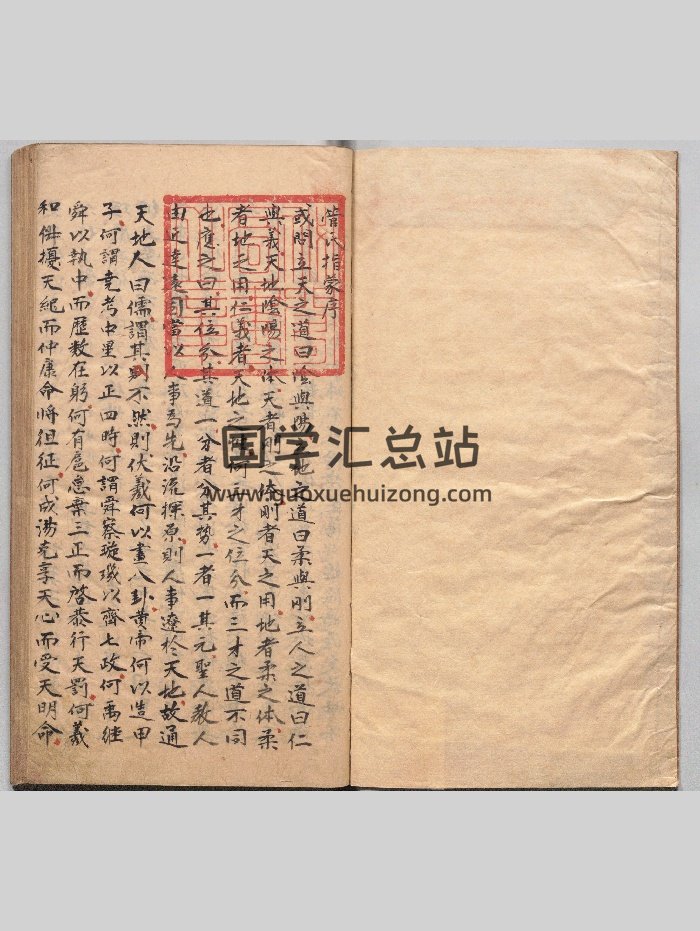 管氏指蒙序
或問立天之道曰陰與陽立地之道曰柔與剛立人之道曰仁
與義天地陰陽之体天者剛之体剛者天之用地者柔之体柔
者地之用仁義者天地之 何三才之位分而三才之道不同
也應之曰其位分其道一分者分其势一者一其元聖人教人
由近 遠 當以人事為先沿流探原則人事遼於天地故通
天地人曰儒謂其 不然則伏羲何以畫八卦黄帝何以造甲
子何謂堯考中星以正四時何謂舜察璇璣以齊七政何禹継
舜以執中而歷数在躬何有扈怠棄三正而啓恭行天罰何羲
和俶擾天紀而仲康命將徂征何成湯克享天心而受天明命
国学汇总站
www.guoxuehuizong.com